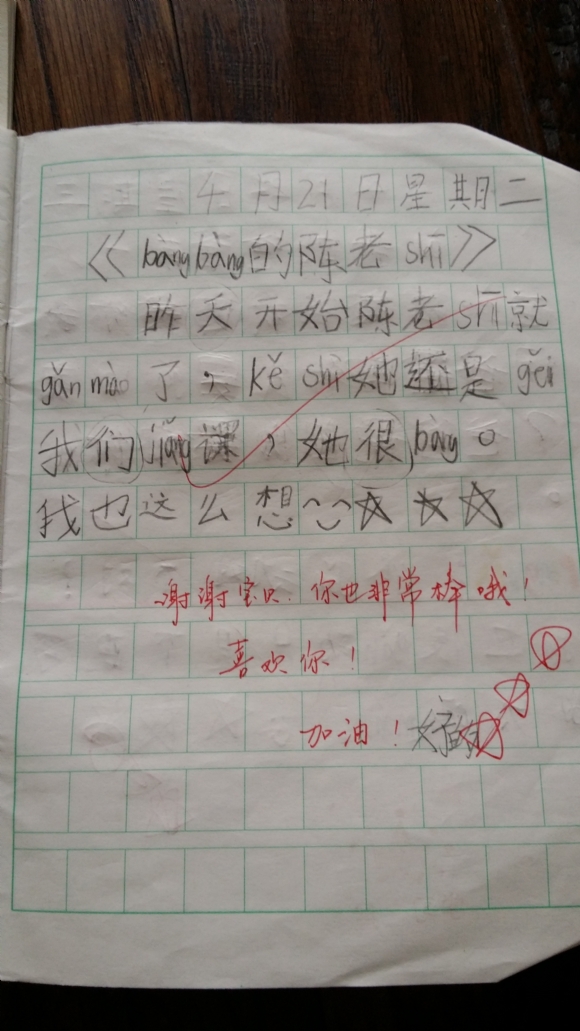 4月21日星期二
《bàngbàng的陈老shī》
昨天开始陈老shī就
gǎn mào了，kě shì她还是gěi
我们jiǎng课，她很bàng。
我也这么想
谢谢宝贝.你也非常棒哦！
喜欢你！
加油！好的